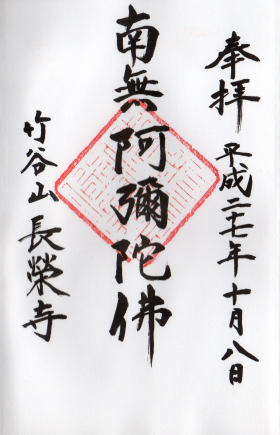 奉拝 平成二十七年十月八日
南無阿彌陀佛
竹谷山 長榮寺